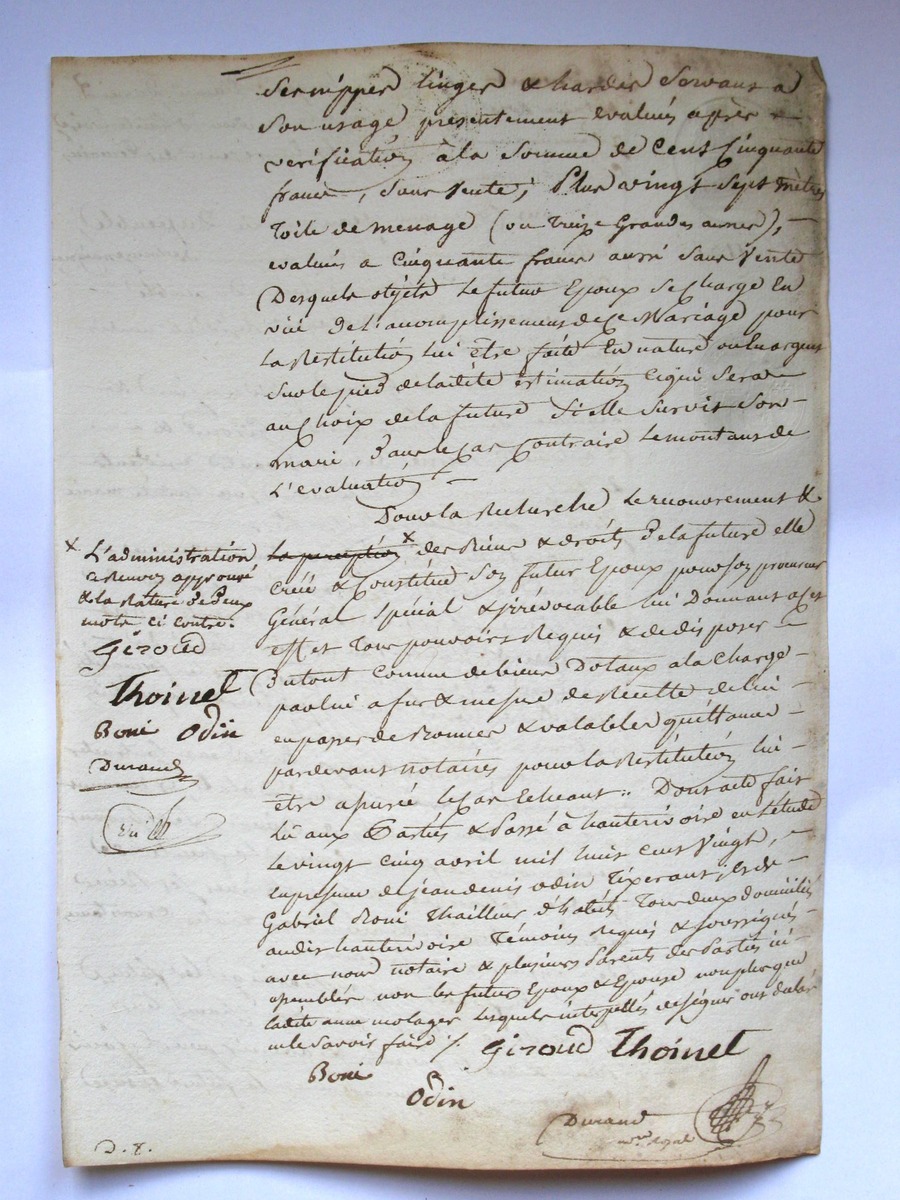 Ses nippes linges & hardes Servant a
Son usage presentement evalués après
verification à la Somme de Cent Cinquante
francs, Sans Vente; Plus vingt Sept mètres
Toile de menage (ou Treize Grandes aunes),
evalués a Cinquante francs aussi Sans Vente
Desquels objets Le futur Epoux Se Charge En
vüe de L'acomplissement de Ce Mariage pour
La Restitution lui être faite En nature ou En argent
Sur le pied de ladite estimation Ce qui Sera
au Choix de la future Si elle Survit Son
mari, dans le Cas Contraire Le montant de
L'evaluation
Pour la Recherche Le recouvrement &
la perception x des Biens & droits de la future elle
créé & Constitué Son futur Epoux pour Son procureur
Général Spécial & irrévocable lui Donnant a Cet
effet Tous pouvoirs Requis & de disposer
Du tout Comme de biens Dotaux a la Charge
par lui a fur & mesure de Recette de lui
en passer de Bonnes & valables quittances
pardevant notaires pour la Restitution lui
être apurée le Cas Echeant. Dont acte fait
Lû aux Parties & Passé à hauterivoire en L'étude
Le vingt Cinq avril mil huit Cent Vingt,
En presence de jean denis odin Tixerant, & de
Gabriel Boni Thailleur d'habits Tous deux domiciliés
audit hauterivoire Témoins Requis & soussignés
avec nous notaire & plusieurs Parents des Parties ici
assemblés non les futurs Epoux & Epouse non plus que
ladite anne molager Lesquels interpellés de Signer ont déclaré
ne le Savoir faire ./.
Giroud Thoinet
Boni
Odin
Durand
nre royal
x L'administration
Renvoi approuvé
& la Rature de Deux
mots ci contre.
Giroud
Thoinet
Boni Odin
Durand
D. 8.